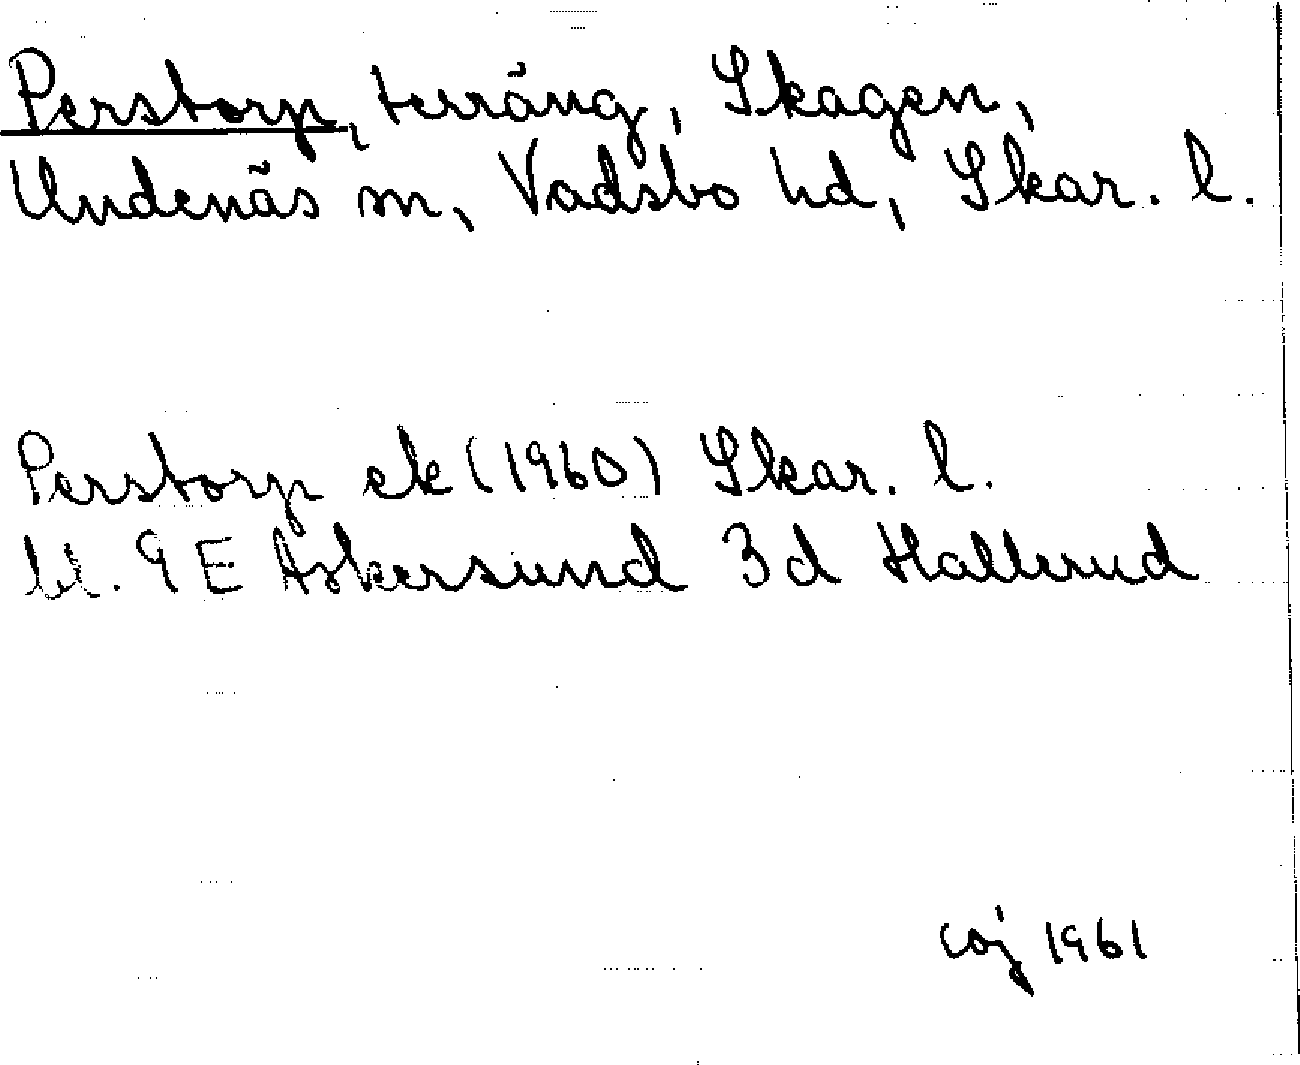 Perstorp, terräng, Skagen,
Undenäs sn, Vadsbo hd, Skar. l.
Perstorp ek (1960) Skar. l.
bl. 9 E Askersund 3d Hallerud
coj 1961